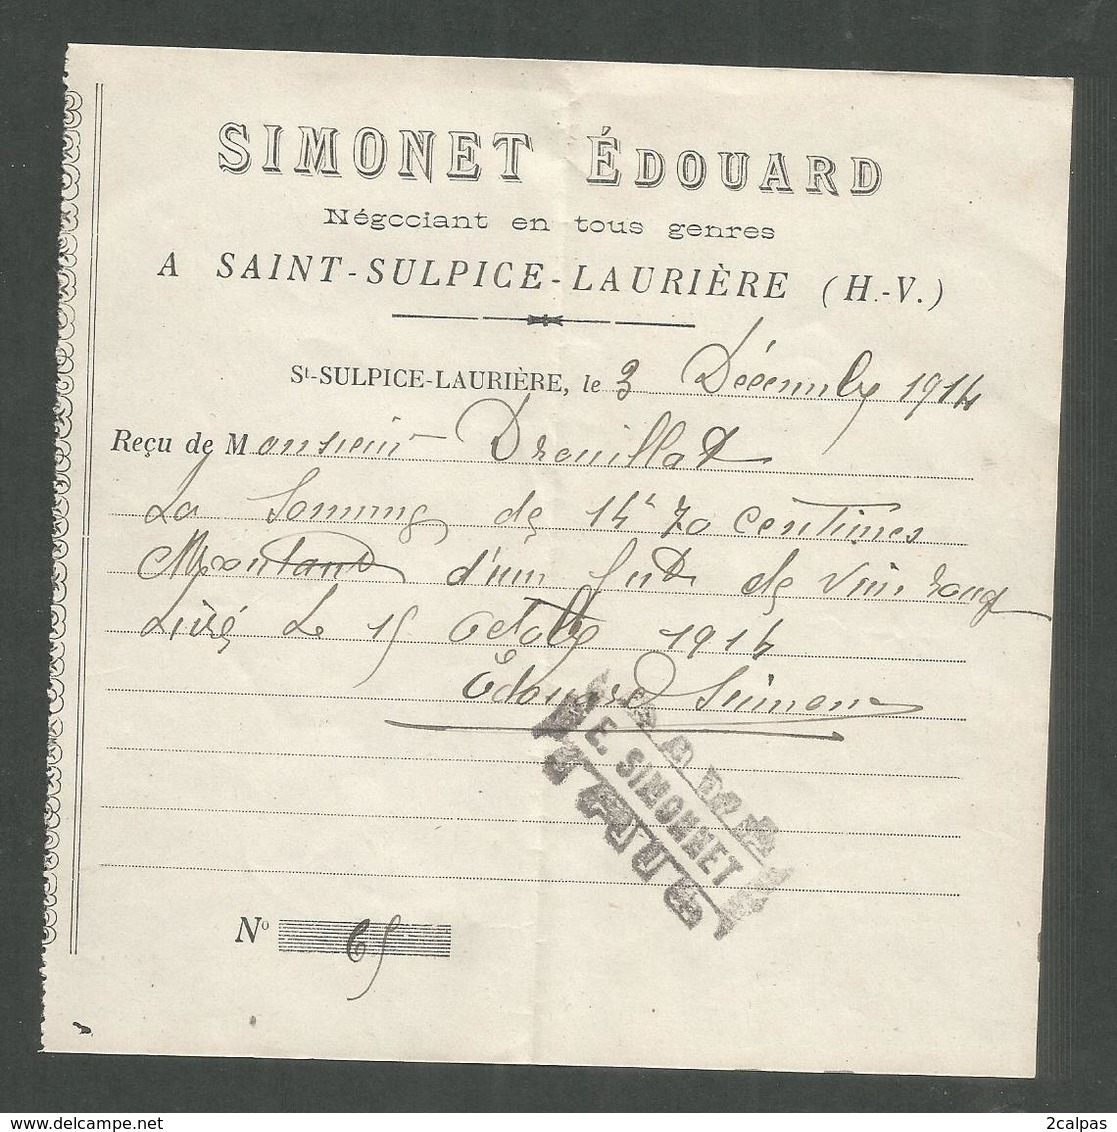 SIMONET ÉDOUARD
Négociant en tous genres
A SAINT-SULPICE-LAURIÈRE (H.-V.)
St-SULPICE-LAURIÈRE, le 3 Décembre 1914
Reçu de Monsieur Drouillat
La Somme de 14f 70 centimes
Montant d'un fut de vin rouge
Livré Le 15 Octobre 1914
Édouard Simonet
E. SIMONNET
No 65
2calpas